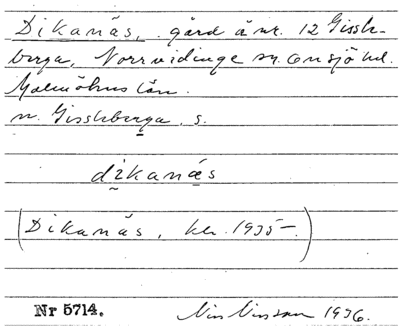 Dikanäs, gård å nr. 12 Gissle-
berga, Norrvidinge sn. Onsjö hd.
Malmöhus län.
n. Gissleberga, s.
dikanäs
(Dikanäs, kk. 1935–.)
Nr 5714. Nils Nilsson 1936.